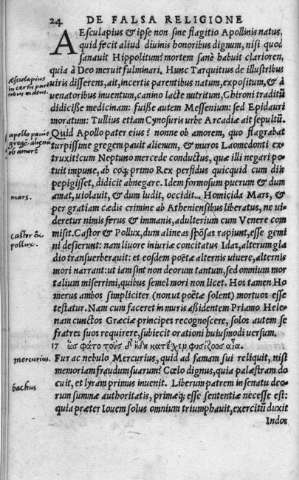 24 DE FALSA RELIGIONE
AEsculapius & ipse non sine flagitio Apollinis natus,
quid fecit aliud diuinis honoribus dignum, nisi quod
sanauit Hippolitum? mortem sanè habuit clariorem,
quia à Deo meruit fulminari. Hunc Tarquitus de illustribus
uiris disserens, ait, incertis parentibus natum, expositum, & à
uenatoribus inuentum, canino lacte nutritum, Chironi traditũ
didicisse medicinam: fuisse autem Messenium: sed Epidauri
moratum: Tullius etiam Cynosuris urbe Arcadiæ ait sepultũ.
Quid Apollo pater eius? nonne ob amorem, quo flagrabat
turpissime gregem pauit alienum, & muros Laomedonti ex
truxit? cum Neptuno mercede conductus, quæ illi negari po
tuit impune, ab eoq; primo Rex perfidus quicquid cum dijs
pepigisset, didicit abnegare. Idem formosum puerum & dum
amat, uiolauit, & dum ludit, occidit. Homicida Mars, &
per gratiam cædis crimine ab Atheniensibus liberatus, ne ui-
deretur nimis ferus & immanis, adulterium cum Venere com
misit. Castor & Pollux, dum alienas spõsas rapiunt, esse gemi
ni desierunt: nam liuore iniuriæ concitatus Idas, alterum gla
dio transuerberauit: et eosdem poëtæ alternis uiuere, alternis
mori narrant: ut iam sint non deorum tantum, sed omnium mor
talium miserrimi, quibus semel mori non licet. Hos tamen Ho
merus ambos simpliciter (non ut poëtæ solent) mortuos esse
testatur. Nam cum faceret in muris assidentem Priamo Hele-
nam cunctos Græciæ principes recognoscere, solos autem se
fratres suos requirere, subiecit orationi huiusmodi uersum,
17 ὣς φάτο τοὺς δ' ἤδη κατέχει φυσίζοος αἶα.
Fur ac nebulo Mercurius, quid ad famam sui reliquit, nisi
memoriam fraudum suarum? Cœlo dignus, quia palæstram do
cuit, et lyram primus inuenit. Liberum patrem in senatu deo
rum summæ authoritatis, primæq; esse sententiæ necesse est:
quia præter Iouem solus omnium triumphauit, exercitũ duxit
Indos
Æsculapius
apollo pauit
gregẽ alienũ
ob amorẽ
mars.
castor &
pollux.
mercurius.
bachus